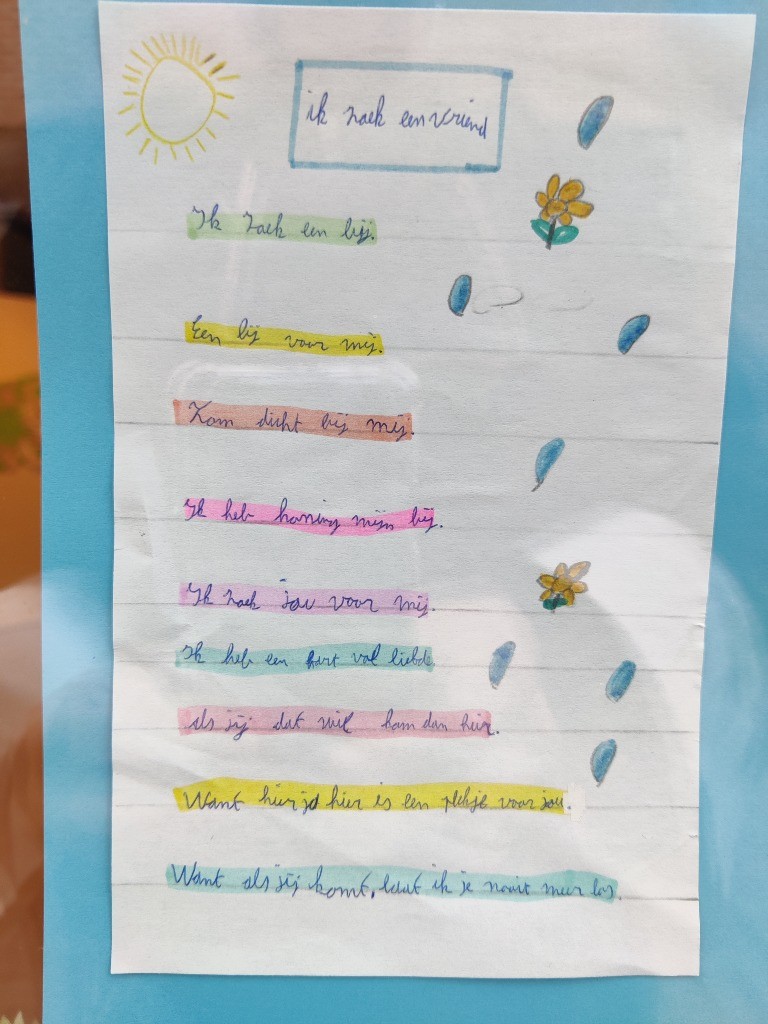 ik zoek een vriend
Ik zoek een bij.
Een bij voor mij.
Kom dicht bij mij.
Ik heb honing mijn bij.
Ik zoek jou voor mij.
Ik heb een hart vol liebde
als jij dat wil kom dan hier.
Want hier ja hier is een plekje voor jou.
Want als jij komt, laat ik je nooit meer los.